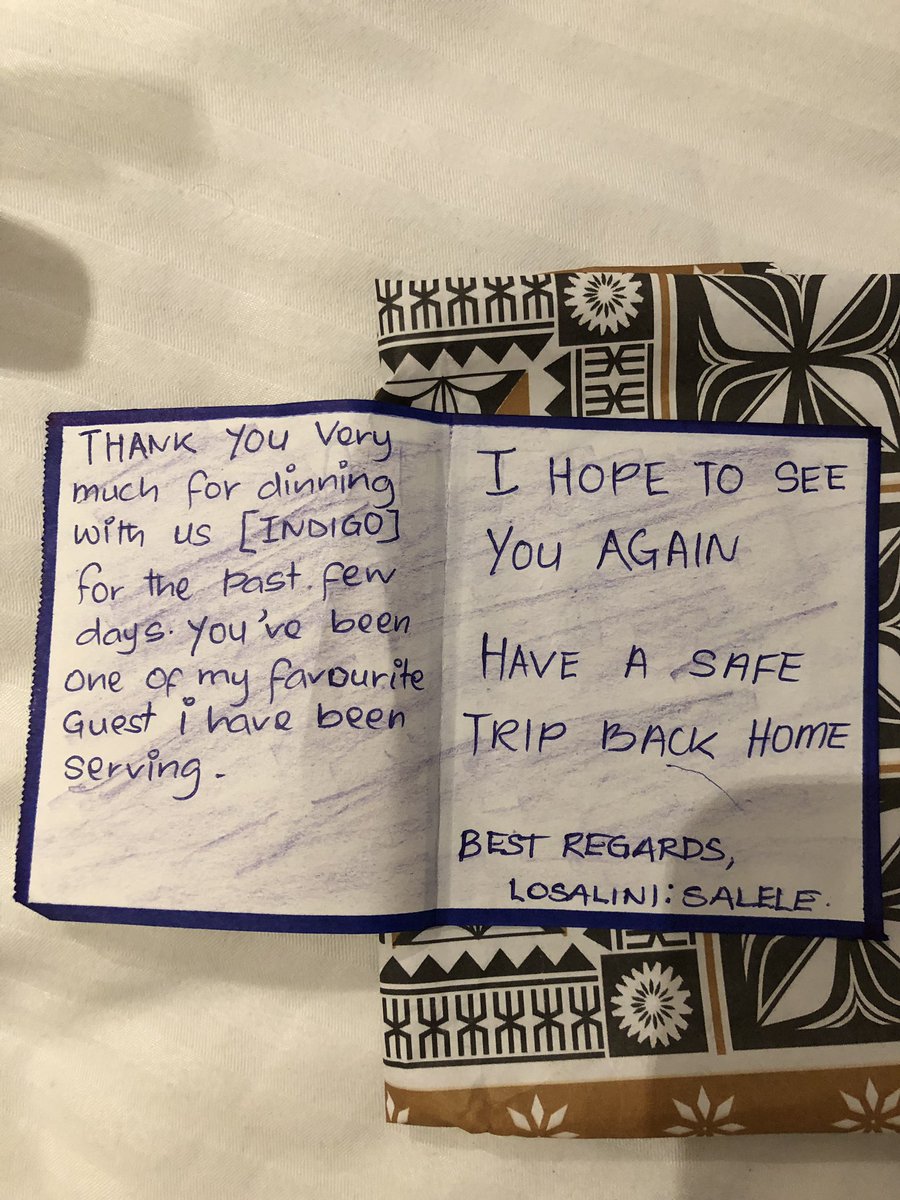 THANK YOU Very
much for dinning
with us [INDIGO]
for the past few
days. You've been
one of my favourite
Guest i have been
serving.
I HOPE TO SEE
YOU AGAIN
HAVE A SAFE
TRIP BACK HOME
BEST REGARDS,
LOSALINI: SALELE.